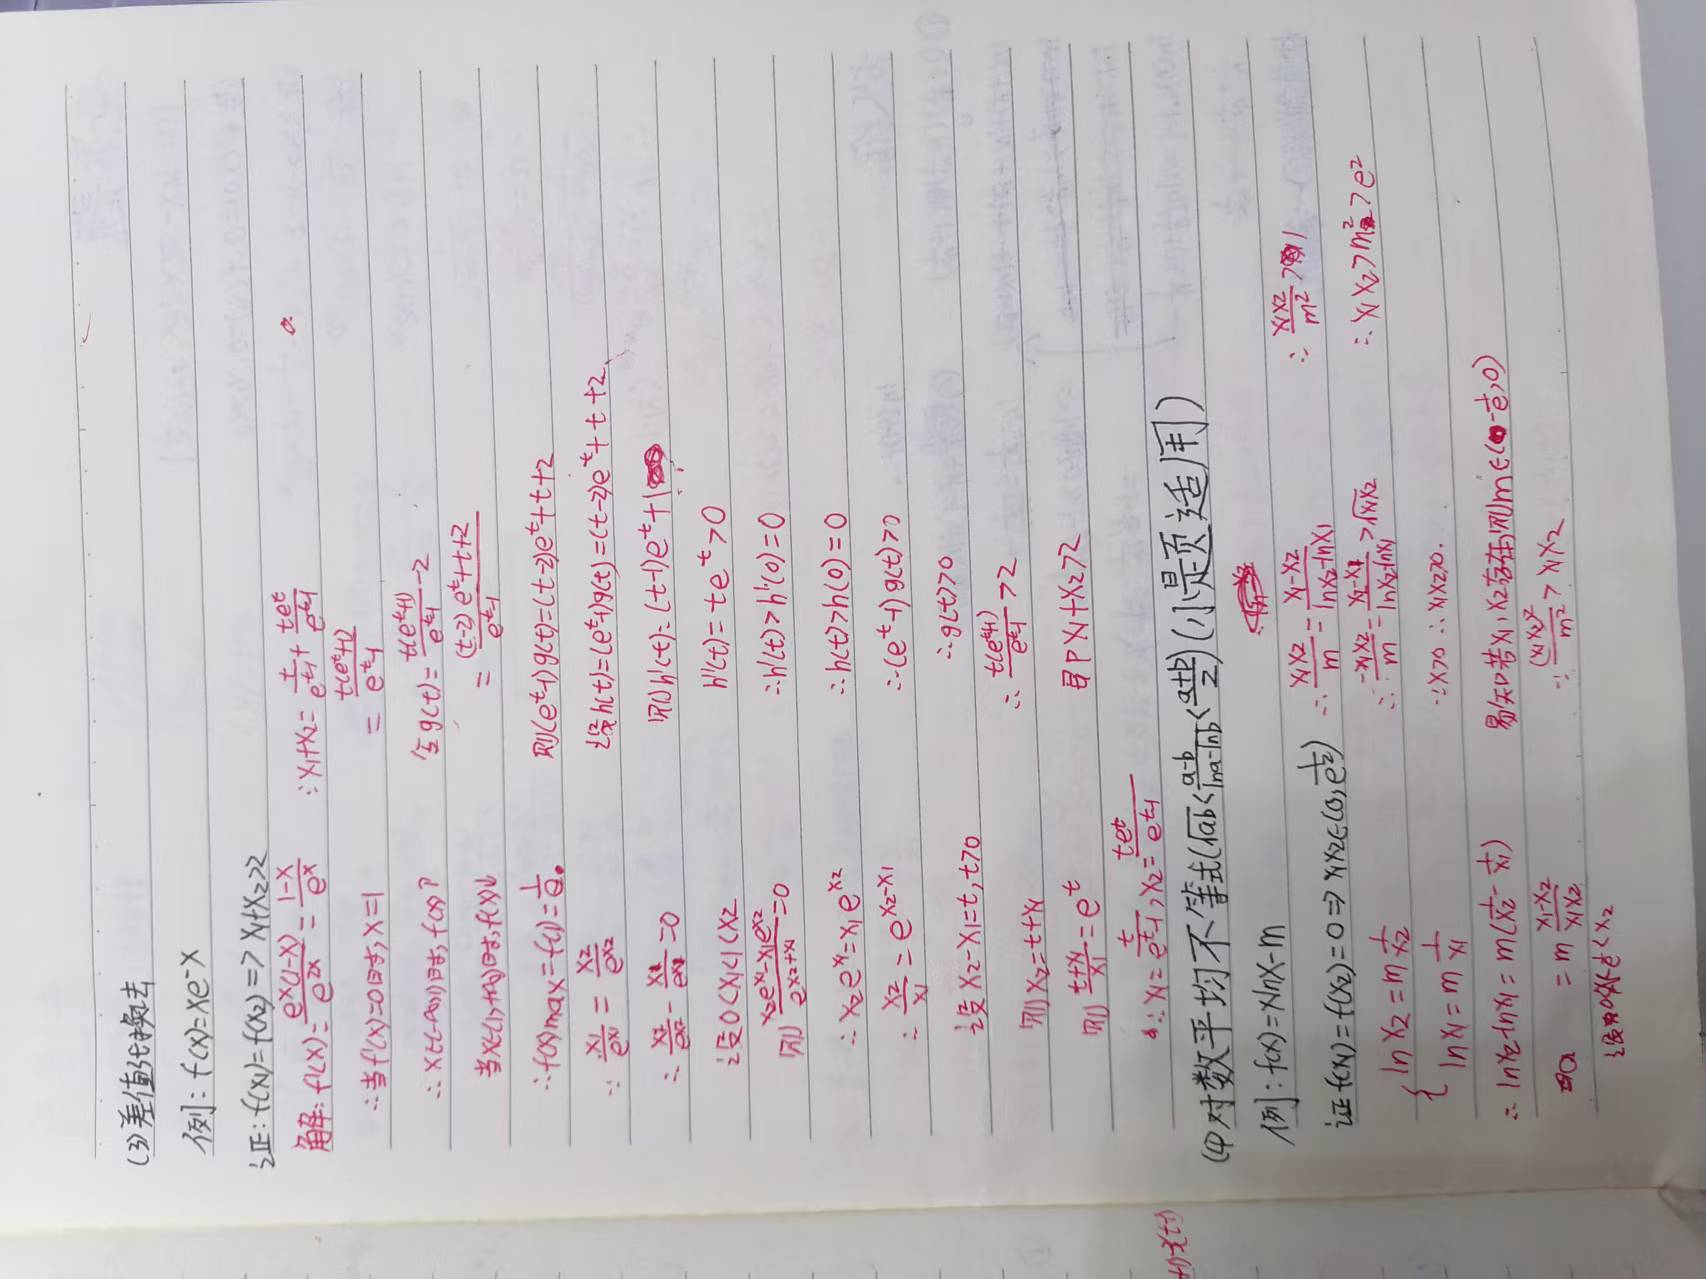 (3)差值代换法
例:f(x)=xe^-x
证:f(x₁)=f(x₂)=>x₁+x₂>2
解:f'(x)=\frac{e^x(1-x)}{e^{2x}}=\frac{1-x}{e^x}
∴当f'(x)=0时,x=1
∴x∈(-∞,1)时,f(x)↑
当x∈(1,+∞)时,f(x)↓
∴f(x)max=f(1)=\frac{1}{e}
∵\frac{x₁}{e^{x₁}}=\frac{x₂}{e^{x₂}}
设0<x₁<1<x₂
则\frac{x₂e^{x₁}-x₁e^{x₂}}{e^{x₂+x₁}}=0
∴x₂e^{x₁}=x₁e^{x₂}
∴\frac{x₂}{x₁}=e^{x₂-x₁}
设x₂-x₁=t,t>0
则x₂=t+x₁
则\frac{t+x₁}{x₁}=e^t
∴x₁=\frac{t}{e^t-1},x₂=\frac{te^t}{e^t-1}
∴x₁+x₂=\frac{t}{e^t-1}+\frac{te^t}{e^t-1}
=\frac{t(e^t+1)}{e^t-1}
令g(t)=\frac{t(e^t+1)}{e^t-1}-2
=\frac{(t-2)e^t+t+2}{e^t-1}
则(e^t-1)g(t)=(t-2)e^t+t+2
设h(t)=(e^t-1)g(t)=(t-2)e^t+t+2
则h'(t)=(t-1)e^t+1
h''(t)=te^t>0
∴h'(t)>h'(0)=0
∴h(t)>h(0)=0
∴(e^t-1)g(t)>0
∴g(t)>0
∴\frac{t(e^t+1)}{e^t-1}>2
即x₁+x₂>2
(4)对数平均不等式(\sqrt{ab}<\frac{a-b}{lna-lnb}<\frac{a+b}{2})(小题适用)
例:f(x)=xlnx-m
证f(x₁)=f(x₂)=0⇒x₁x₂∈(0,\frac{1}{e²})
{lnx₂=m\frac{1}{x₂}
lnx₁=m\frac{1}{x₁}
∴lnx₂-lnx₁=m(\frac{1}{x₂}-\frac{1}{x₁})
=m\frac{x₁-x₂}{x₁x₂}
∴\frac{x₁x₂}{m}=\frac{x₁-x₂}{lnx₂-lnx₁}
∴\frac{-x₁x₂}{m}=\frac{x₂-x₁}{lnx₂-lnx₁}>\sqrt{x₁x₂}
∵x>0∴x₁x₂>0.
易知若x₁,x₂存在则m∈(-\frac{1}{e},0)
∴\frac{(x₁x₂)²}{m²}>x₁x₂
∴\frac{x₁x₂}{m²}>1
∴x₁x₂>m²>e²